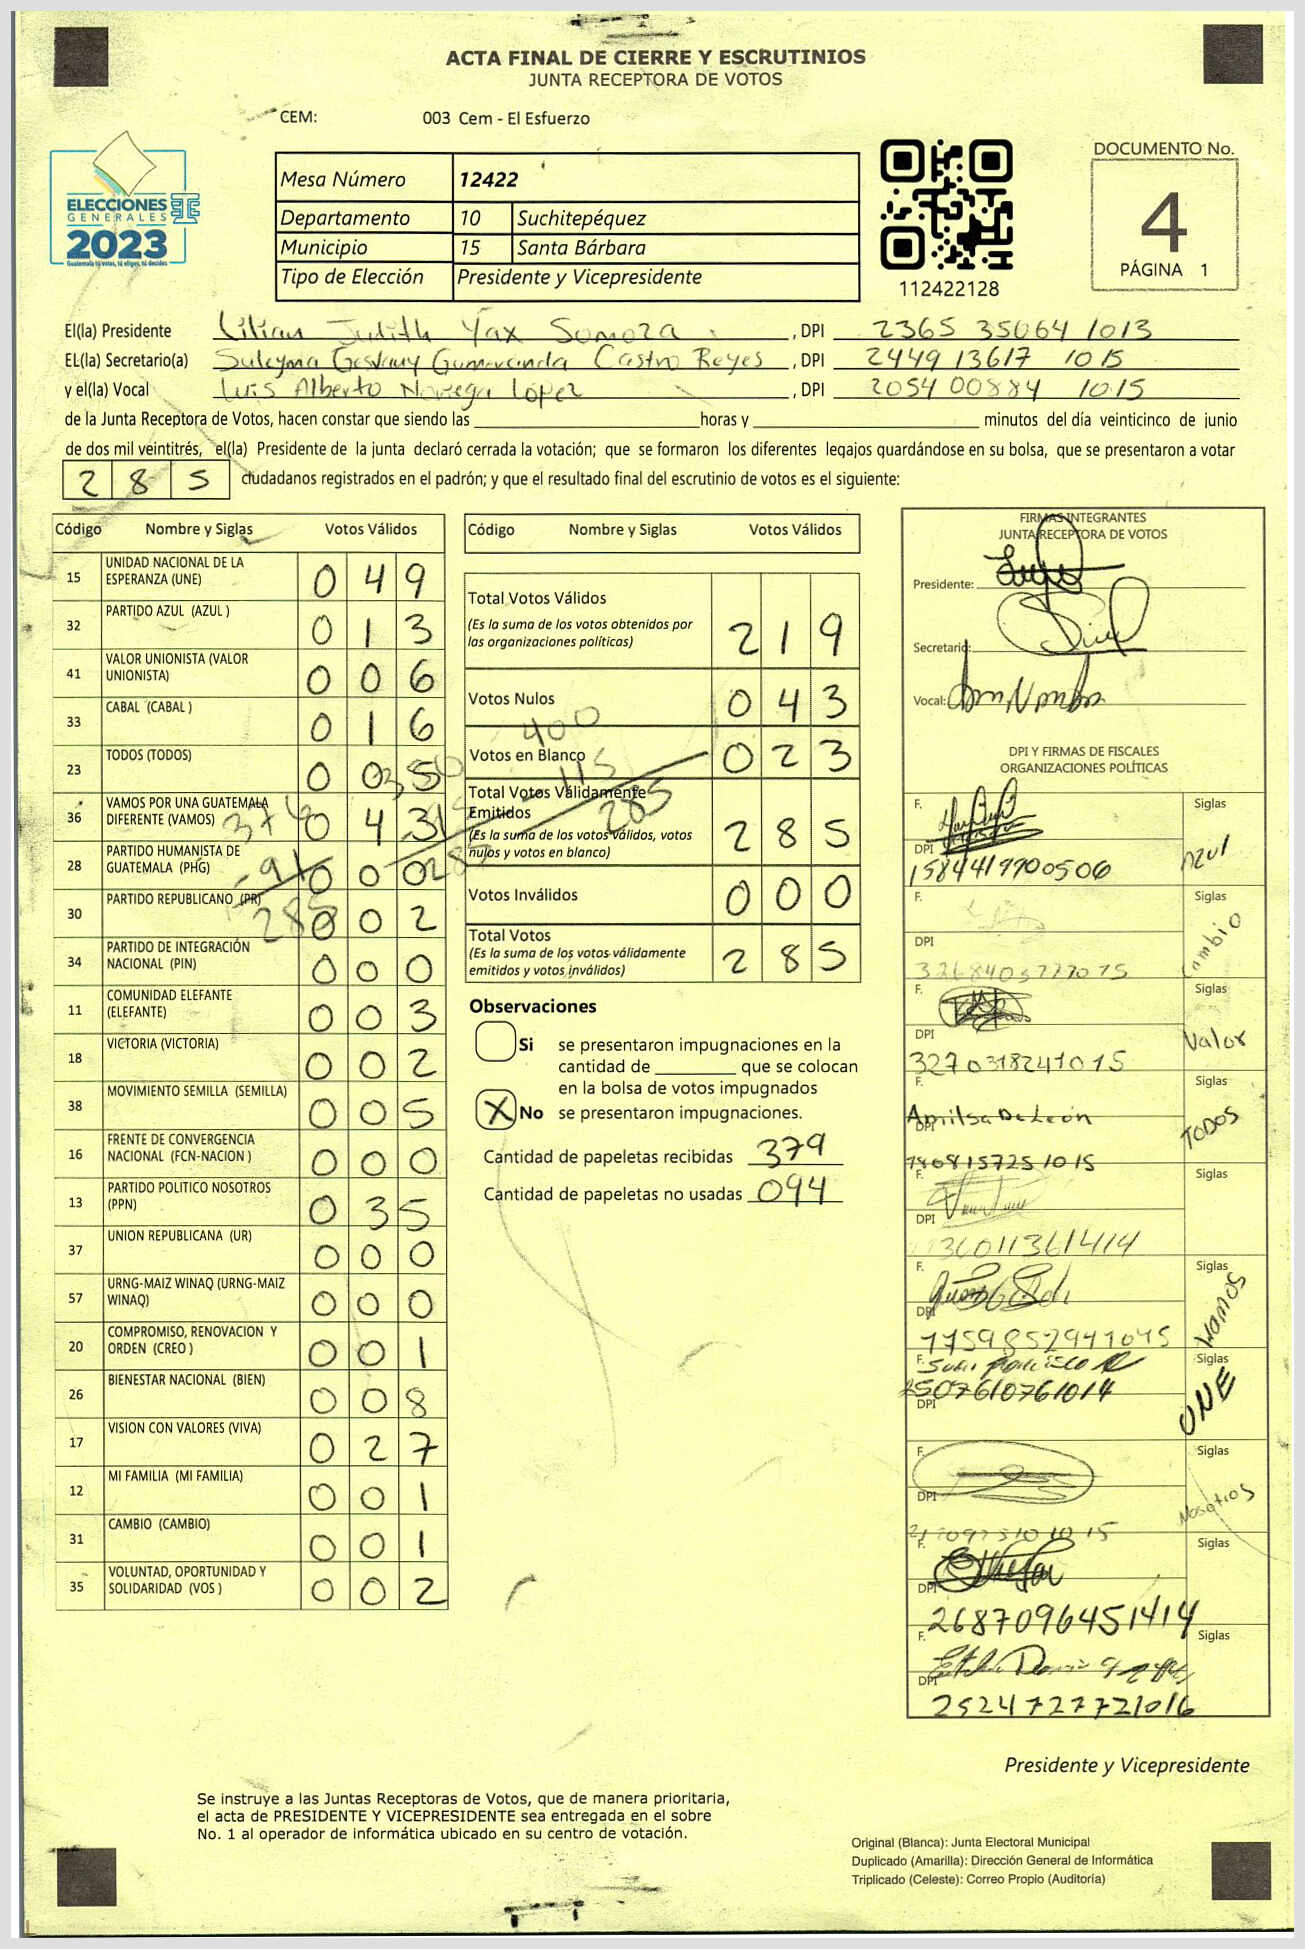 ACTA FINAL DE CIERRE Y ESCRUTINIOS
JUNTA RECEPTORA DE VOTOS
CEM: 003 Cem - El Esfuerzo
ELECCIONES
GENERALES
2023
Guatemala tú votas, tú eliges, tú decides
Mesa Número 12422
Departamento 10 Suchitepéquez
Municipio 15 Santa Bárbara
Tipo de Elección Presidente y Vicepresidente
112422128
DOCUMENTO No.
4
PÁGINA 1
El(la) Presidente Lilian Judith Yax Somoza, DPI 2365 35064 1013
EL(la) Secretario(a) Suleyma Castro Reyes, DPI 2449 13617 1015
y el(la) Vocal Luis Alberto Noriega López, DPI 2054 00884 1015
de la Junta Receptora de Votos, hacen constar que siendo las horas y minutos del día veinticinco de junio
de dos mil veintitrés, el(la) Presidente de la junta declaró cerrada la votación; que se formaron los diferentes legajos guardándose en su bolsa, que se presentaron a votar
285 ciudadanos registrados en el padrón; y que el resultado final del escrutinio de votos es el siguiente:
Código Nombre y Siglas Votos Válidos
15 UNIDAD NACIONAL DE LA ESPERANZA (UNE) 049
32 PARTIDO AZUL (AZUL ) 013
41 VALOR UNIONISTA (VALOR UNIONISTA) 006
33 CABAL (CABAL ) 016
23 TODOS (TODOS) 005
36 VAMOS POR UNA GUATEMALA DIFERENTE (VAMOS) 043
28 PARTIDO HUMANISTA DE GUATEMALA (PHG) 000
30 PARTIDO REPUBLICANO (PR) 002
34 PARTIDO DE INTEGRACIÓN NACIONAL (PIN) 000
11 COMUNIDAD ELEFANTE (ELEFANTE) 003
18 VICTORIA (VICTORIA) 002
38 MOVIMIENTO SEMILLA (SEMILLA) 005
16 FRENTE DE CONVERGENCIA NACIONAL (FCN-NACION ) 000
13 PARTIDO POLITICO NOSOTROS (PPN) 035
37 UNION REPUBLICANA (UR) 000
57 URNG-MAIZ WINAQ (URNG-MAIZ WINAQ) 000
20 COMPROMISO, RENOVACION Y ORDEN (CREO ) 001
26 BIENESTAR NACIONAL (BIEN) 008
17 VISION CON VALORES (VIVA) 027
12 MI FAMILIA (MI FAMILIA) 001
31 CAMBIO (CAMBIO) 001
35 VOLUNTAD, OPORTUNIDAD Y SOLIDARIDAD (VOS ) 002
Código Nombre y Siglas Votos Válidos
Total Votos Válidos 219
(Es la suma de los votos obtenidos por
las organizaciones políticas)
Votos Nulos 043
400
Votos en Blanco 023
115
285
Total Votos Válidamente
Emitidos 285
(Es la suma de los votos válidos, votos
nulos y votos en blanco)
Votos Inválidos 000
Total Votos 285
(Es la suma de los votos válidamente
emitidos y votos inválidos)
Observaciones
Si se presentaron impugnaciones en la
cantidad de que se colocan
en la bolsa de votos impugnados
X No se presentaron impugnaciones.
Cantidad de papeletas recibidas 379
Cantidad de papeletas no usadas 094
FIRMAS INTEGRANTES
JUNTA RECEPTORA DE VOTOS
Presidente:
Secretario:
Vocal:
DPI Y FIRMAS DE FISCALES
ORGANIZACIONES POLÍTICAS
F. Siglas
DPI Azul
1584419900506
F. Siglas
DPI Cambio
F. Siglas
DPI Valor
3270318241015
F. Siglas
DPI TODOS
F. Siglas
DPI
F. Siglas
DPI
F. Siglas
2507610761014 UNE
DPI
F. Siglas
DPI Nosotros
F. Siglas
DPI
2687096451414
F. Siglas
DPI
2524727721016
Presidente y Vicepresidente
Se instruye a las Juntas Receptoras de Votos, que de manera prioritaria,
el acta de PRESIDENTE Y VICEPRESIDENTE sea entregada en el sobre
No. 1 al operador de informática ubicado en su centro de votación.
Original (Blanca): Junta Electoral Municipal
Duplicado (Amarilla): Dirección General de Informática
Triplicado (Celeste): Correo Propio (Auditoría)